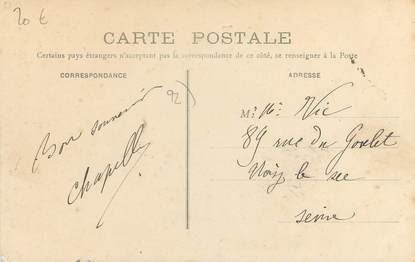 20 €
CARTE POSTALE
Certains pays étrangers n'acceptant pas la correspondance de ce côté, se renseigner à la Poste
CORRESPONDANCE
ADRESSE
92)
Bon souvenir
Chapelle
Vié
89 rue du Goulet
Noisy le sec
seine